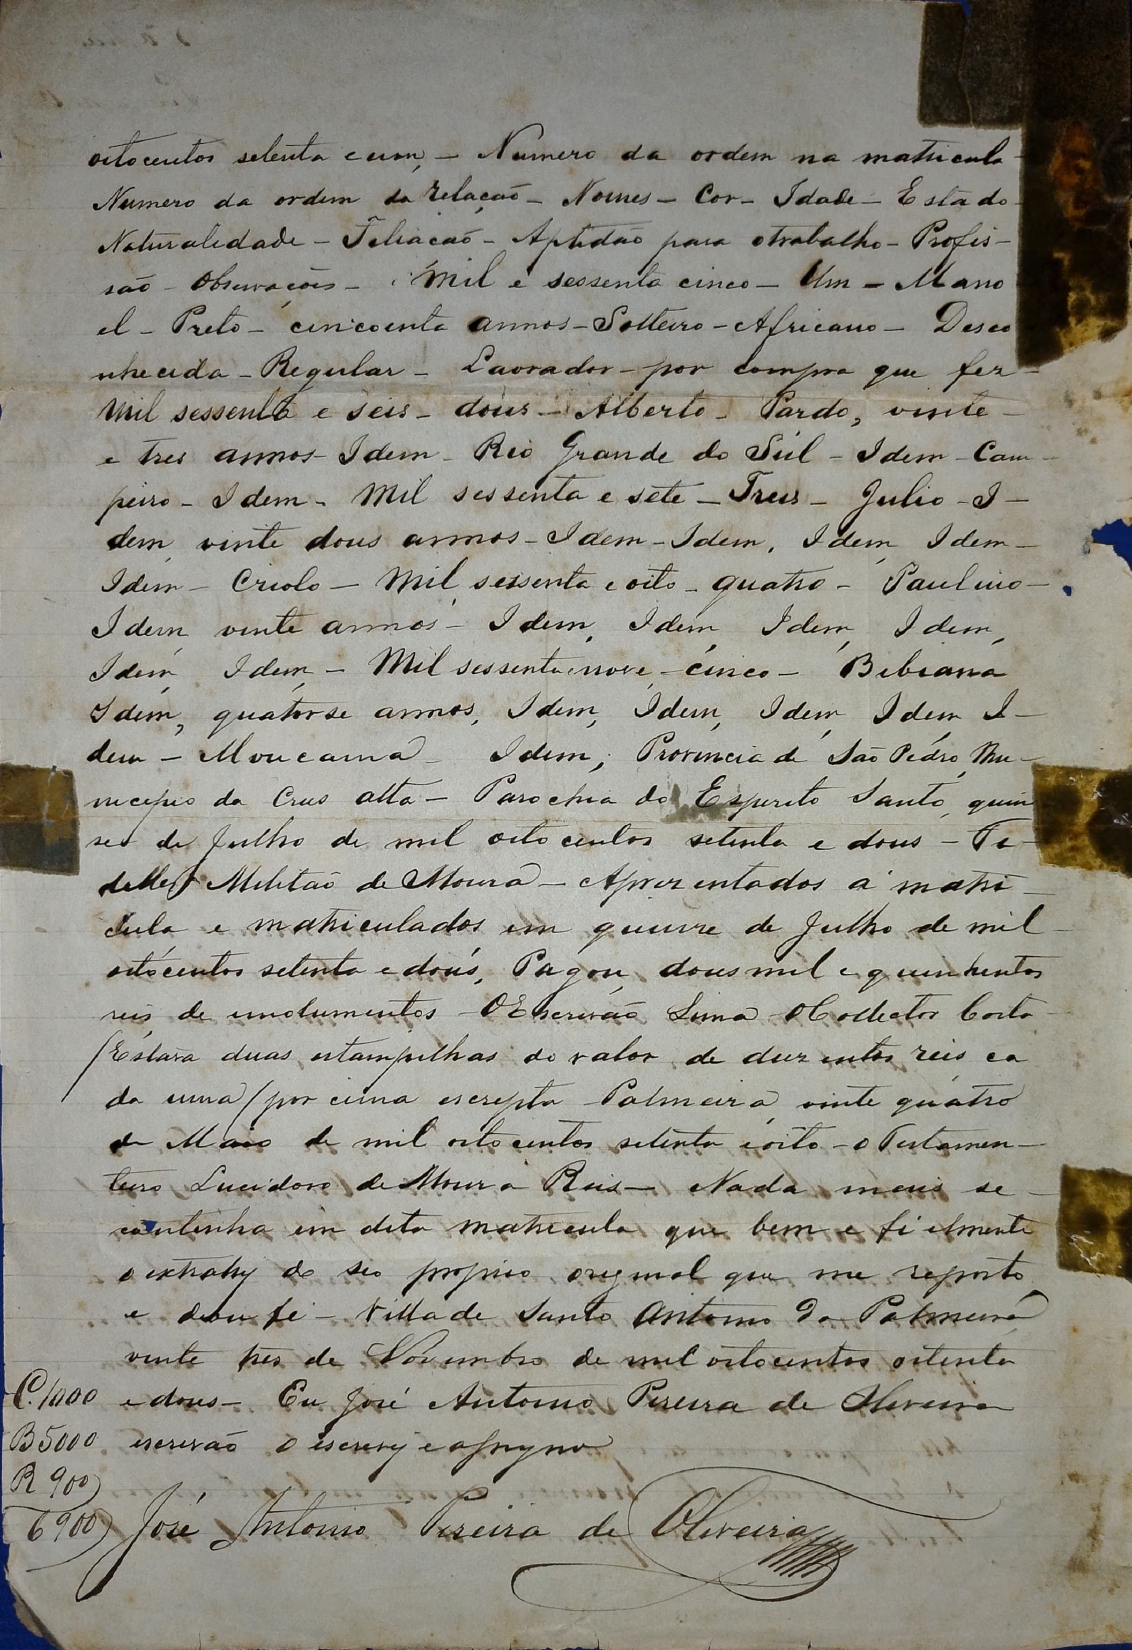 oitocentos setenta e um, - Numero da ordem na matricula
Numero da ordem da relação - Nomes - Cor - Idade - Estado
Naturalidade - Filiação - Aptidão para otrabalho - Profis-
são - Observações - Mil e sessenta cinco - Um - Mano
el - Preto - cincoenta annos - Solteiro - Africano - Desco
nhecida - Regular - Lavrador - por compra que fez -
Mil sessenta e seis - dous - Alberto - Pardo, vinte -
e tres annos - Idem - Rio Grande do Sul - Idem - Cam -
peiro - Idem - Mil sessenta e sete - Treis - Julio - I -
dem, vinte dous annos - Idem - Idem, Idem, Idem -
Idem - Criolo - Mil sessenta e oito - quatro - Paulino -
Idem, vinte annos - Idem, Idem, Idem, Idem,
Idem, Idem, - Mil sessenta nove - cinco - Bibiana
Idem, quatorse annos, Idem, Idem, Idem, Idem I -
dem - Moucama - Idem, Provincia de São Pedro, Mu -
nicipio da Crus alta - Parochia do Espirito Santo, quin
se de Julho de mil oitocentos setenta e dous - Fi -
delles Militão de Moura - Aprezentados a matri -
cula e matriculados em quinze de Julho de mil
oitocentos setenta e dous, Pagou, dous mil e quinhentos
reis de emolumentos - O Escrivão Lima - O Collector Costa
/ Estava duas estampilhas do valor de duzentos reis ca
da uma / por cima escripto - Palmeira, vinte quatro
de Maio de mil oitocentos setenta e oito - o Testamen -
teiro Lucidoro de Moura Reis - Nada mais se
continha em dita matricula que bem e fielmente
o extrahy do seo proprio original que me reporto
e dou fé - Villa de Santo Antonio da Palmeira
vinte tres de Novembro de mil oitocentos oitenta
C. 1000 e dous - Eu José Antonio Pereira de Oliveira
B 5000 escrivão o escrevy e assigno
R 900
6900 José Antonio Pereira de Oliveira